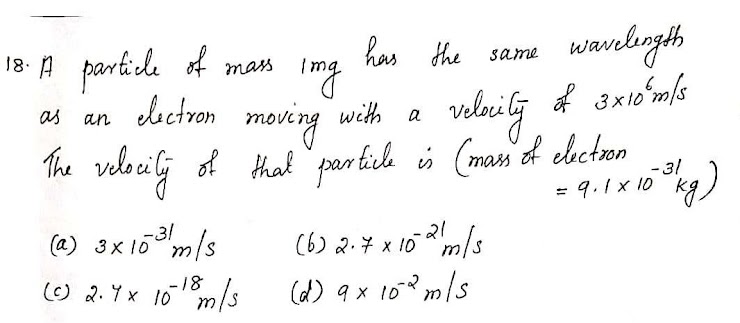 18. A particle of mass 1mg has the same wavelength
as an electron moving with a velocity of 3×10⁶m/s
The velocity of that particle is (mass of electron
= 9.1 × 10⁻³¹ kg)
(a) 3×10⁻³¹m/s (b) 2.7 × 10⁻²¹m/s
(c) 2.7× 10⁻¹⁸m/s (d) 9 × 10⁻²m/s